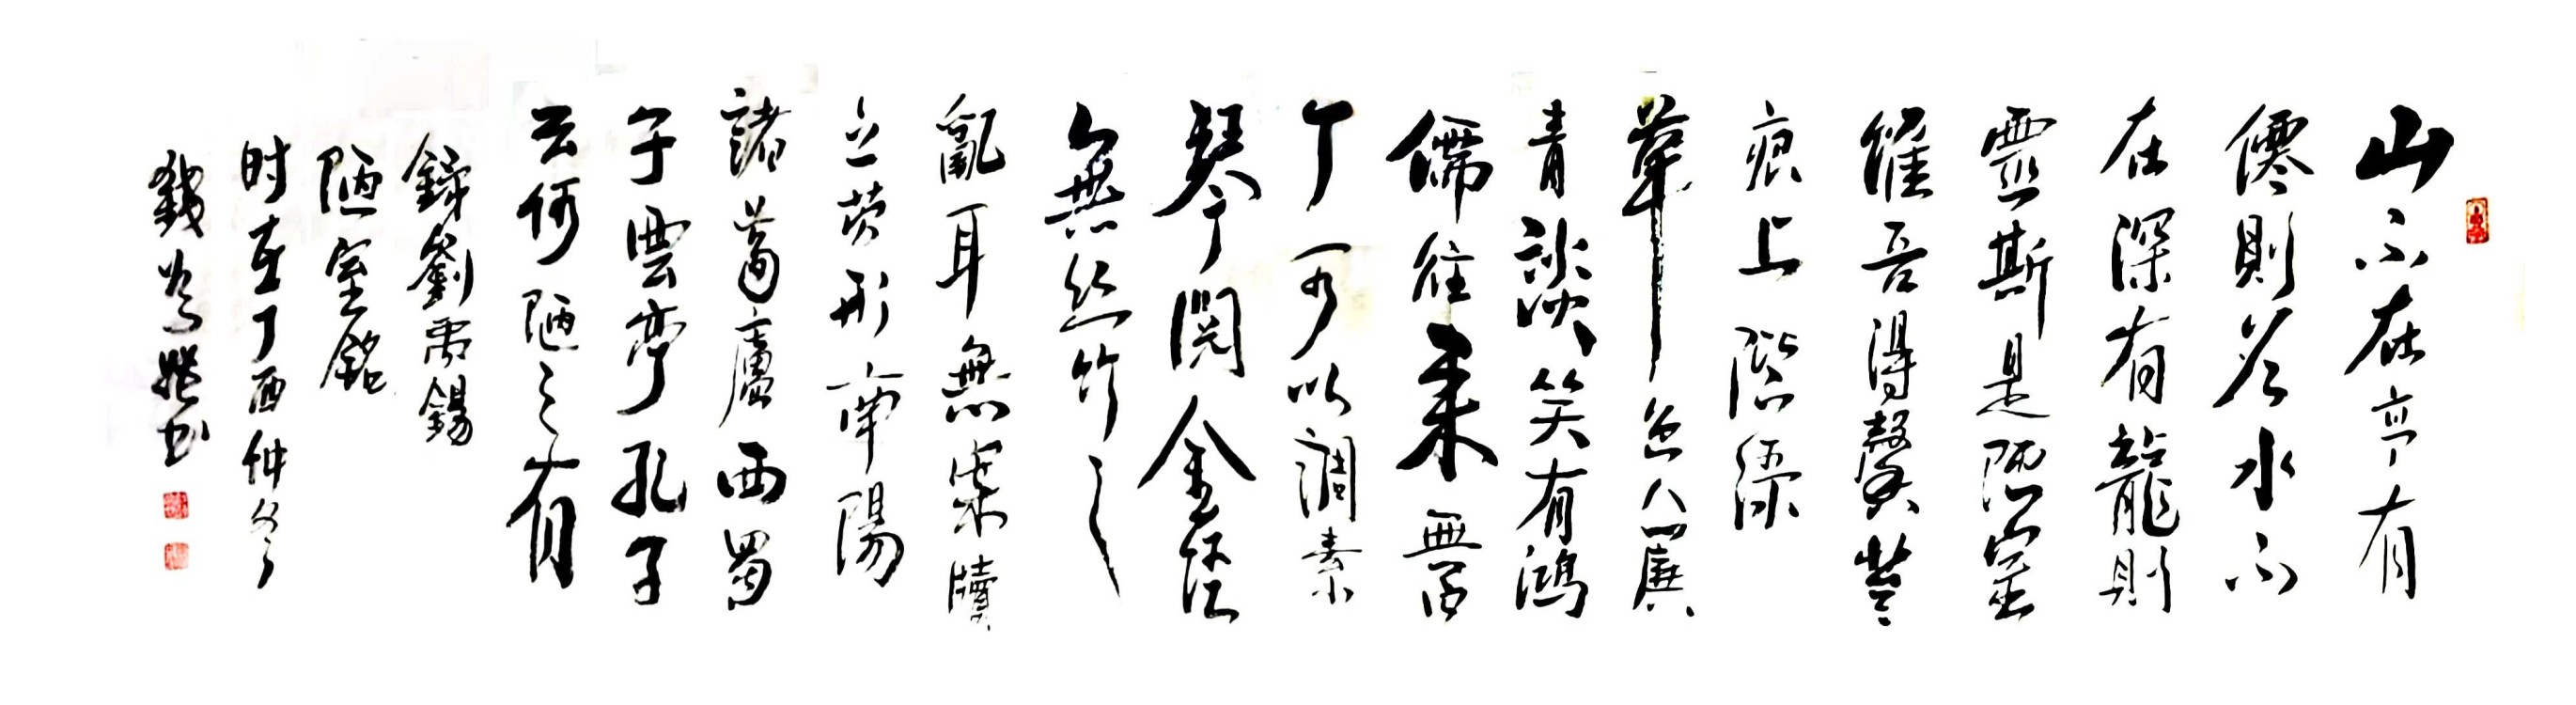 山不在高有
僊則名水不
在深有龍則
靈斯是陋室
惟吾得馨苔
痕上階綠
草色入簾
青談笑有鴻
儒往来無白
丁可以調素
琴閱金經
無絲竹之
亂耳無案牘
之勞形南陽
諸葛廬西蜀
子雲亭孔子
云何陋之有
錄劉禹錫
陋室銘
时在丁酉仲冬
书